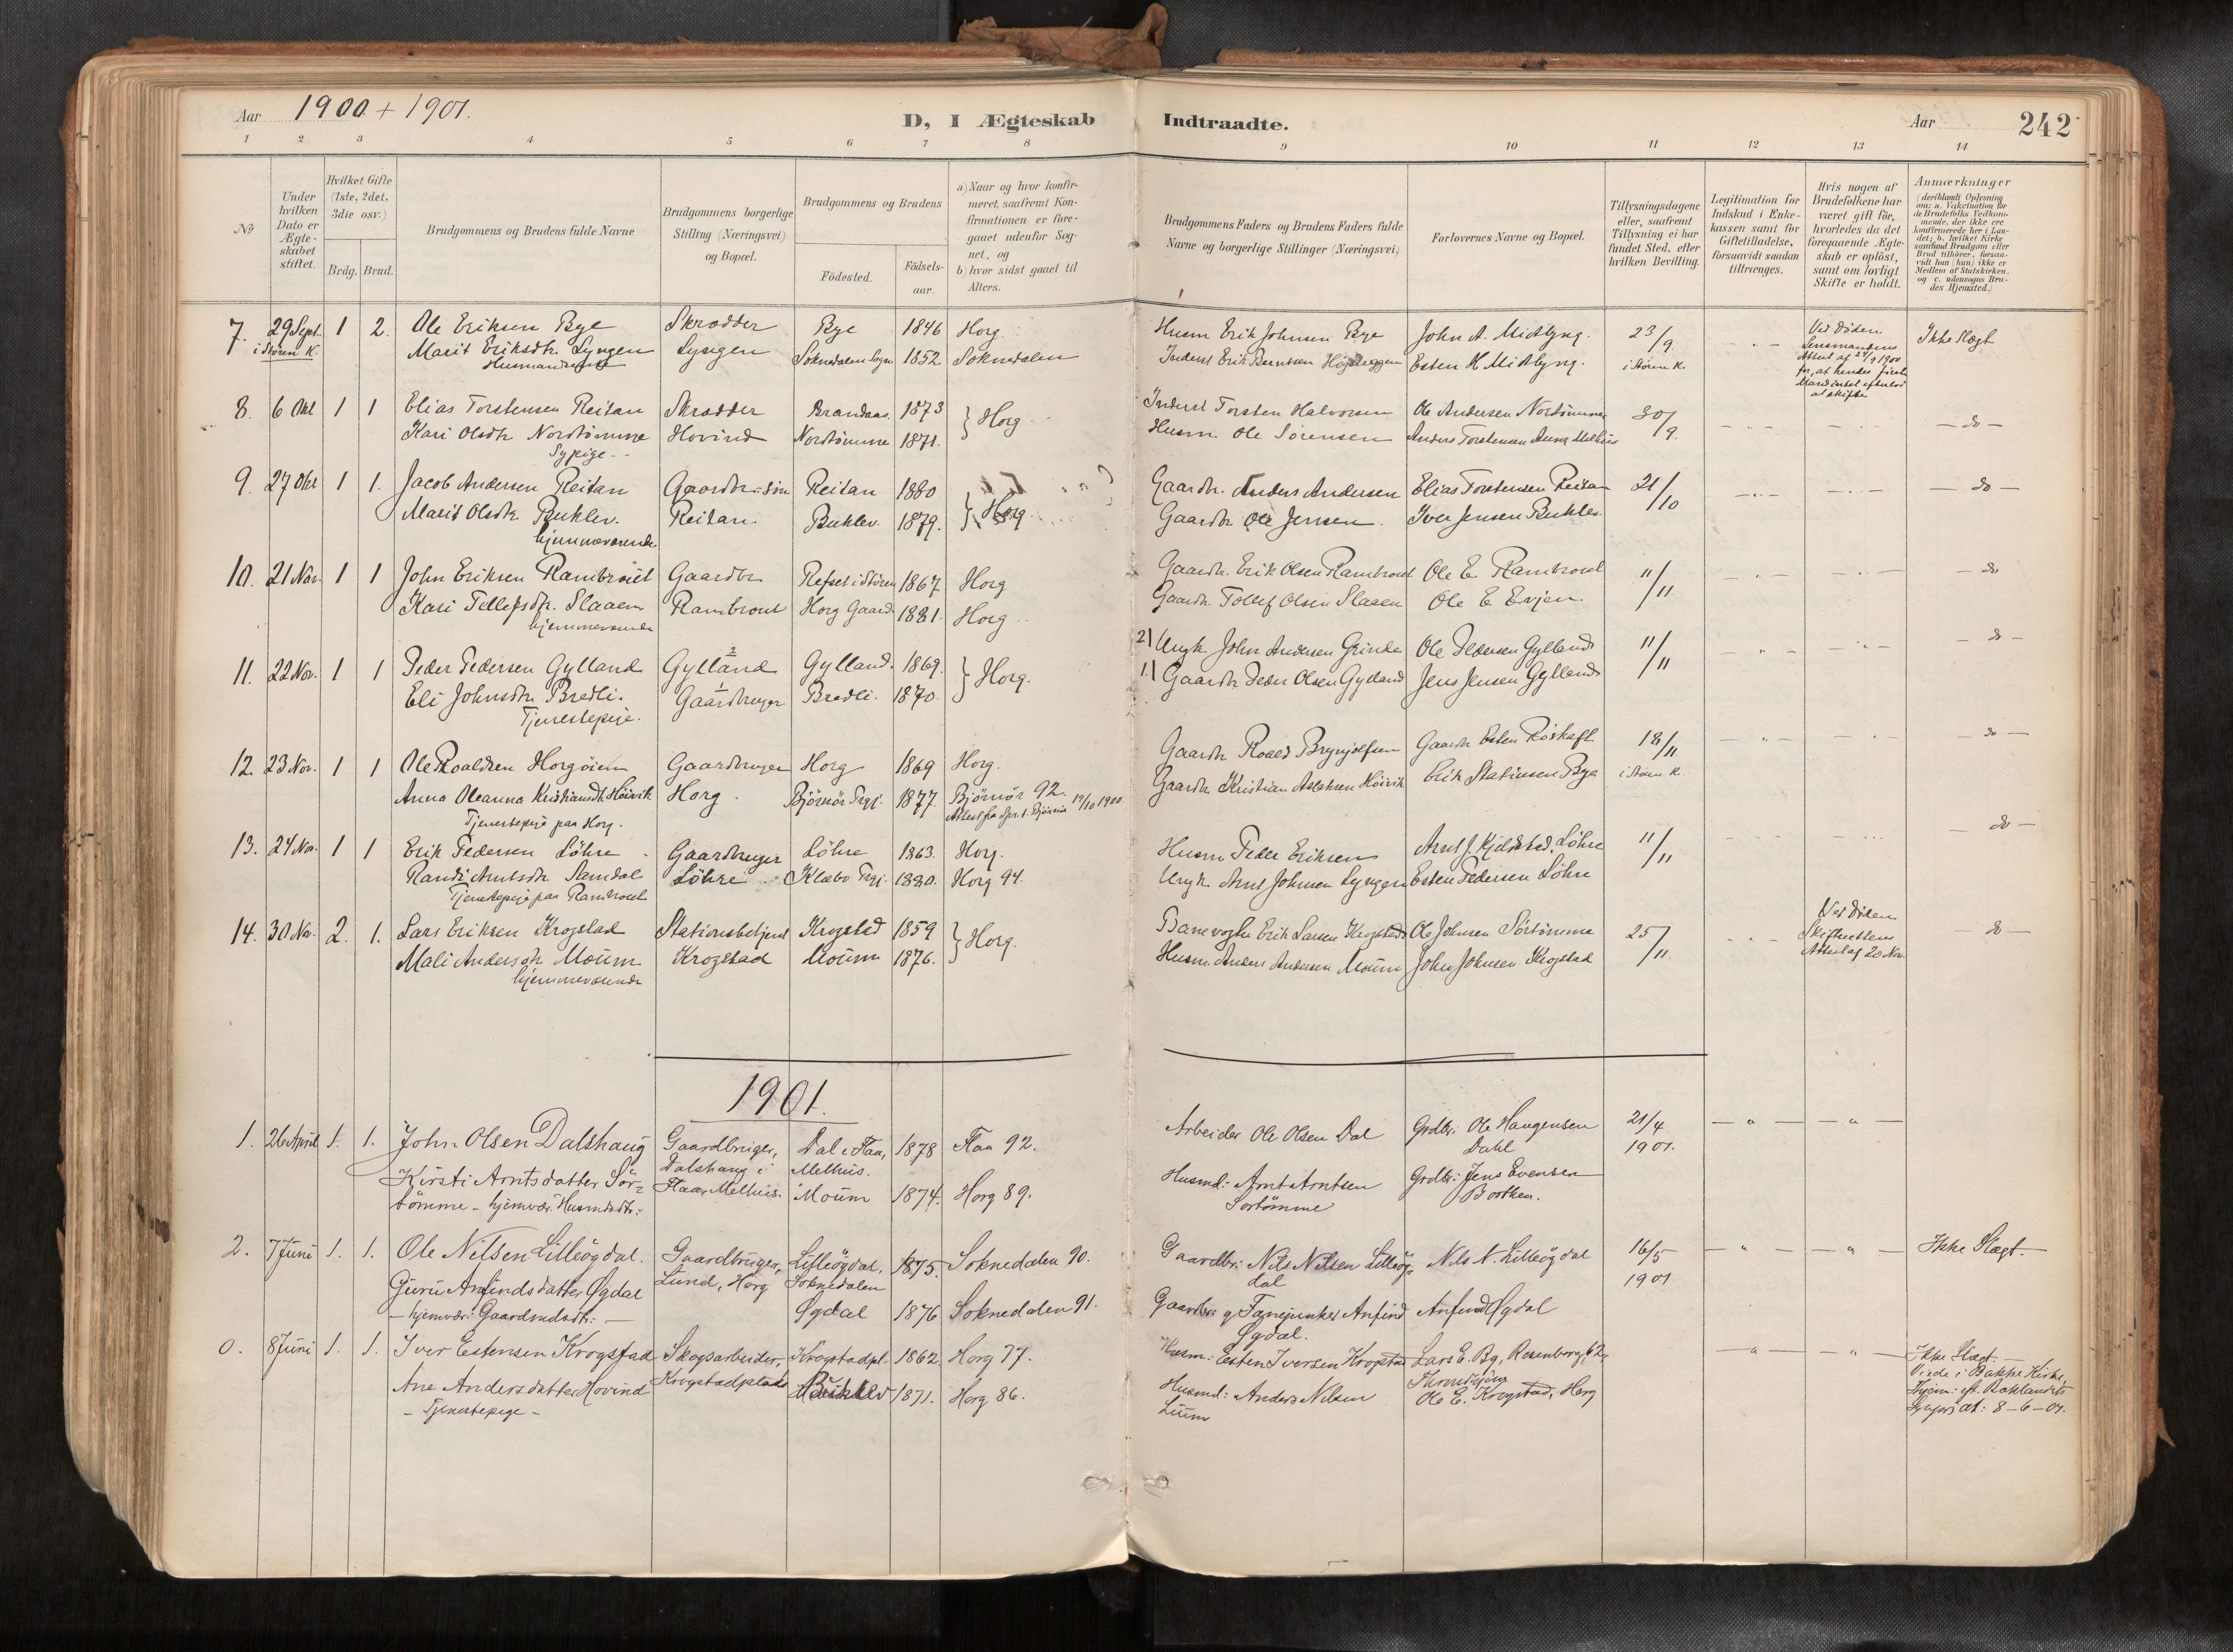 Aar 1900 + 1901.
D, I Ægteskab Indtraadte.
Aar 242
1 2 3 4 5 6 7 8 9 10 11 12 13 14
No
Under hvilken Dato er Ægteskabet stiftet.
Hvilket Gifte (1ste, 2det, 3die osv.)
Brdg. Brud.
Brudgommens og Brudens fulde Navne
Brudgommens borgerlige Stilling (Næringsvei) og Bopæl.
Brudgommens og Brudens
Födested. Födsels-aar.
a) Naar og hvor konfirmeret, saafremt Konfirmationen er foregaaet udenfor Sognet, og
b) hvor sidst gaaet til Alters.
Brudgommens Faders og Brudens Faders fulde Navne og borgerlige Stillinger (Næringsvei)
Forlovernes Navne og Bopæl.
Tillysningsdagene eller, saafremt Tillysning ei har fundet Sted, efter hvilken Bevilling.
Legitimation for Indskud i Enkekassen samt for Giftetilladelse, forsaavidt saadan tiltrænges.
Hvis nogen af Brudefolkene har været gift för, hvorledes da det foregaaende Ægteskab er oplöst, samt om lovligt Skifte er holdt.
Anmærkninger
(deriblandt Oplysning om: a. Vakcination for de Brudefolks Vedkommende, der ikke ere konfirmerede her i Landet; b. hvilket Kirkesamfund Brudgom eller Brud tilhörer, forsaavidt han (hun) ikke er Medlem af Statskirken, og c. udensogns Brudes Hjemsted.)
7. 29 Sept. 1 2. Ole Eriksen Bye Skrædder Bye 1846 Horg Husm Erik Johnsen Bye John A. Midtlyng. 23/9 Ved Döden Ikke Slægt
i Stören K. Marit Eriksdtr. Lyngen Lyngen Soknedalen Sogn 1852 Soknedalen Inderst Erik Berntsen Esten H. Midtlyng. i Stören K. Lensmandens
Attest af 24/9 1900
8. 6 Okt 1 1 Elias Torstensen Reitan Skrædder Brandaas. 1873 } Horg Inderst Torsten Halvorsen Ole Andersen Nordtömme 30/9. do
Kari Olsdtr Nordtömme Hovind Nordtömme 1871. Husm. Ole Sörensen Anders Torstensen
Sypige
9. 27 Okt 1 1. Jacob Andersen Reitan Gaardbr: Sön Reitan 1880 } Horg Gaardbr. Anders Andersen Elias Torstensen Reitan 21/10 do
Marit Olsdtr. Buhlev. Reitan. Buhlev. 1879. Gaardbr Ole Jensen. Iver Jensen Buhlev.
hjemmeværende
10. 21 Nov. 1 1 John Eriksen Rambraut Gaardbr Refset i Stören 1867 Horg Gaardbr. Erik Olsen Rambraut Ole E. Rambraut 11/11 do
Kari Tollefsdtr. Slaaen Rambraut Horg Gaard 1881. Horg Gaardbr. Tollef Olsen Slaaen Ole E Evjen.
hjemmeværende
11. 22 Nov. 1 1 Peder Pedersen Gylland Gylland Gylland. 1869. } Horg. 2) Ungk. John Andersen Grinde Ole Pedersen Gylland 11/11 do
Eli Johnsdtr. Bredli. Gaardbruger Bredli. 1870. 1) Gaardbr Peder Olsen Gylland Jens Jensen Gylland
Tjenestepige.
12. 23 Nov. 1 1 Ole Roaldsen Horgöien Gaardbruger Horg 1869 Horg. Gaardbr Roald Brynjolfsen Gaardbr Esten Röskaft 18/11 do
Anna Oleanna Kristiansdtr Höivik Horg. Björnör Prgj. 1877. Björnör 92. Gaardbr Kristian Aslaksen Höivik Erik Statinsen Bye i Stören K.
Tjenestepige paa Horg. Attest fra Spr. t. Björnör 19/10 1900
13. 24 Nov. 1 1 Erik Pedersen Löhre Gaardbruger Löhre 1863. Horg. Husm Peder Eriksen Arnt J. Kjeldstad, Löhre 11/11 do
Randi Arntsdtr Samdal Löhre Klæbo Prgj. 1880. Horg 94. Ungk. Arnt Johnsen Lyngen Esten Pedersen Löhre
Tjenestepige paa Rambraut
14. 30 Nov. 2. 1. Lars Eriksen Krogstad Stationsbetjent Krogstad 1859 } Horg. Banevogter Erik Larsen Krogstad Ole Johnsen Sörtömme 25/11. Ved Döden do
Mali Andersdtr Moum Krogstad Moum 1876. Husm. Anders Andersen Moum John Johnsen Krogstad Skifterettens
hjemmeværende Attest af 20 Nov
1901.
1. 26 April 1. 1. John Olsen Dalshaug Gaardbruger, Dal i Flaa, 1878 Flaa 92. Arbeider Ole Olsen Dal Grdbr: Ole Haugensen 21/4
Dalshaug i Melhus. Dahl 1901.
Kirsti Arntsdatter Sör- Flaa, Melhus. Moum 1874. Horg 89. Husmd: Arnt Arntsen Grdbr: Jens Evensen
tömme - hjemvær. Husmdsdtr: Sörtömme Borthen.
2. 7 Juni 1. 1. Ole Nilsen Lilleögdal. Gaardbruger, Lilleögdal, 1875. Soknedalen 90. Gaardbr: Nils Nilsen Lilleög- Nils N. Lilleögdal 16/5 Ikke Slægt.
Lund, Horg Soknedalen dal 1901
Guru Anfindsdatter Øgdal Øgdal 1876 Soknedalen 91. Gaardbr: og Fanejunker Anfind Anfind Øgdal
- hjemvær: Gaardmdsdtr: - Øgdal.
0. 8 Juni 1. 1. Iver Estensen Krogstad Skogsarbeider, Krogstadpl. 1862. Horg 77. Husm: Esten Iversen Krogstad Lars E. By, Rosenborg 62, Ikke Slægt.
Krogstadplads Throndhjem Viede i Bakke Kirke,
Ane Andersdatter Hovind Buhlev 1871. Horg 86. Husmd: Anders Nilsen Ole E. Krogstad, Horg Thjem: ef. Baklandets
- Tjenestepige - Luum at: 8-6-01.